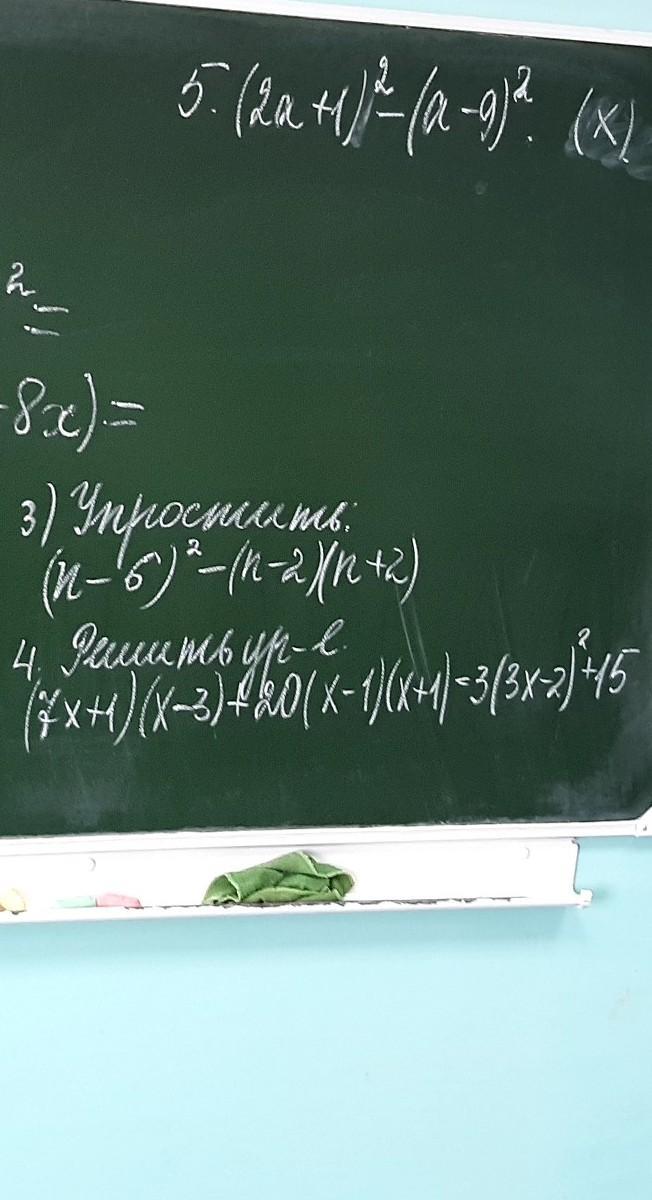 5. (2a+1)² - (a-9)². (x)
² =
-8x) =
3) Упростить:
(n-6)² - (n-2)(n+2)
4. Решить ур-е.
(7x+1)(x-3)+20(x-1)(x+1)=3(3x-2)²+15